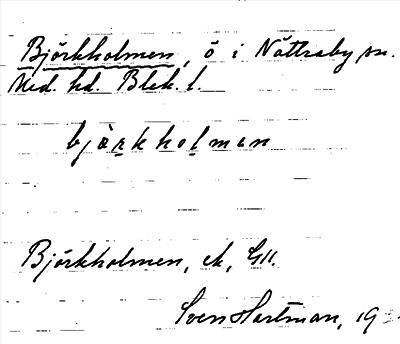 Björkholmen, ö i Nättraby sn.
Med. hd. Blek. l.
bjö̀rkholmen
Björkholmen, ek, GII.
Sven Hartman, 19